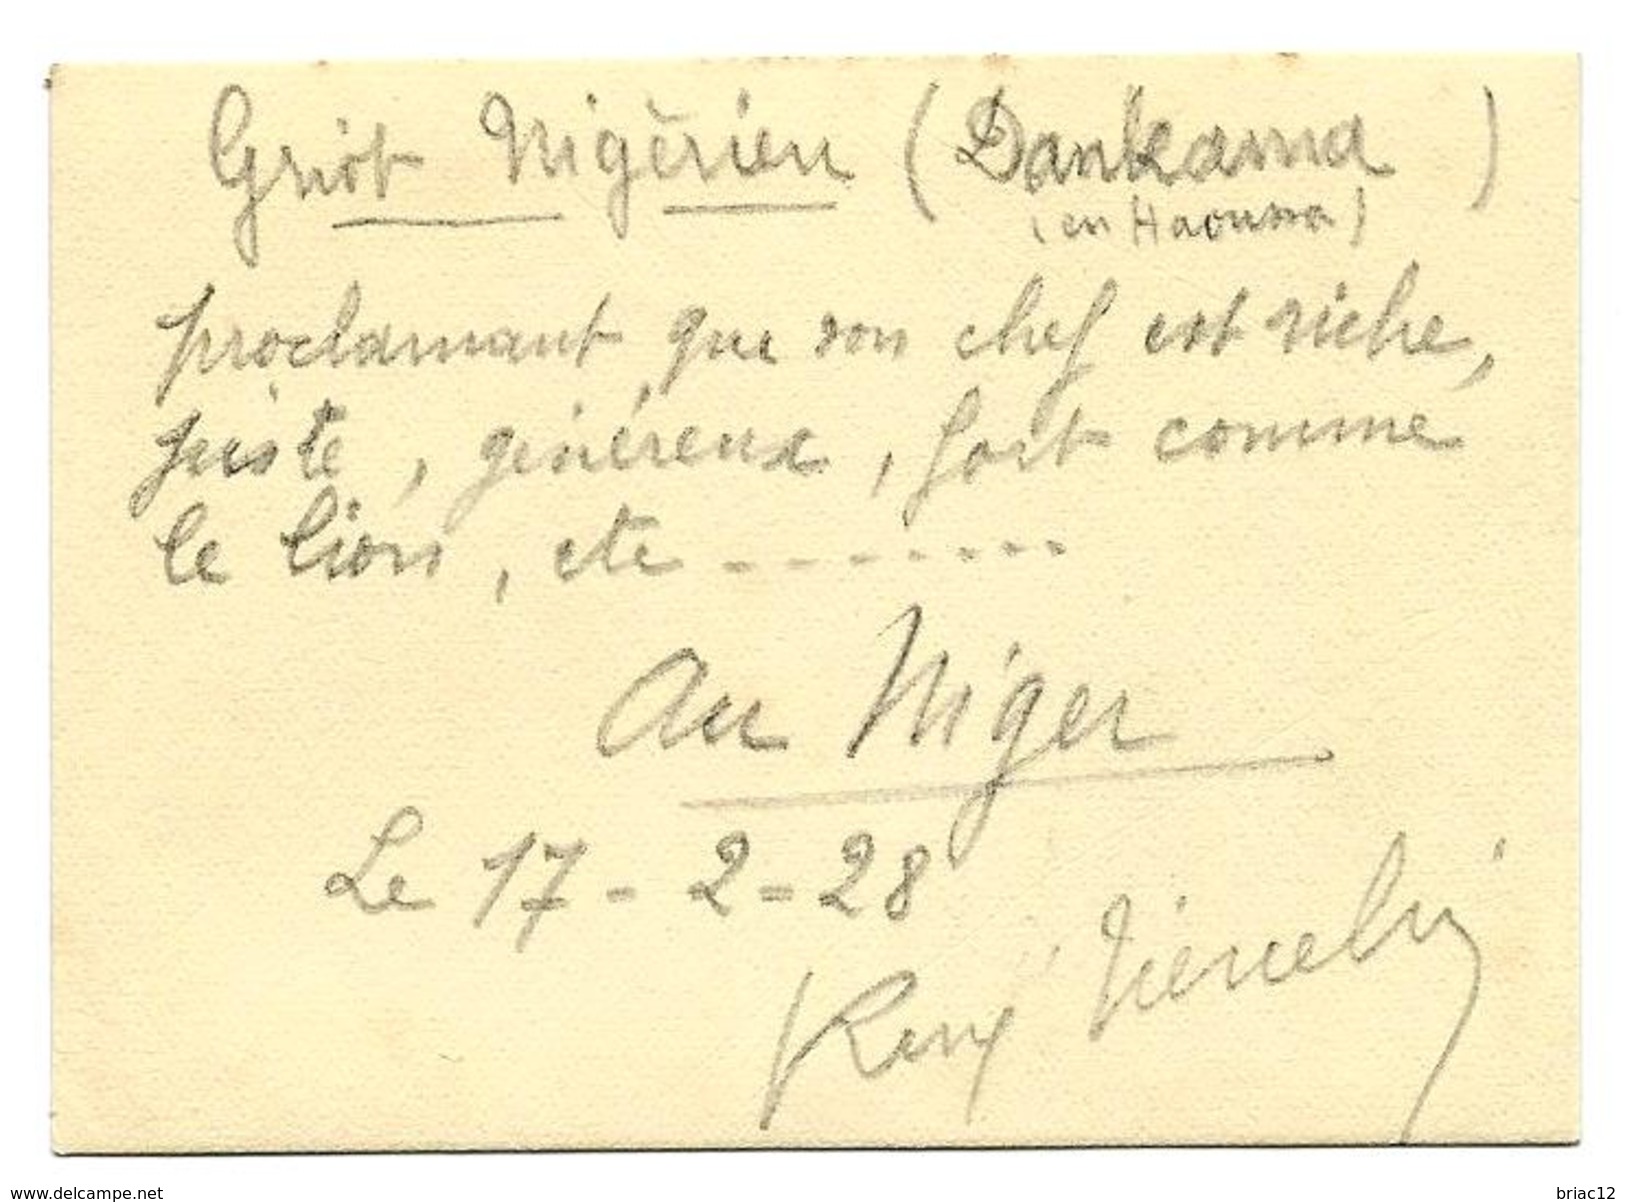 Griot Nigérien (Dankama)
(en Haoussa)
proclamant que son chef est riche,
juste, généreux, fort comme
le lion, etc --------
Au Niger
Le 17 - 2 - 28
René
www.delcampe.net
briac12